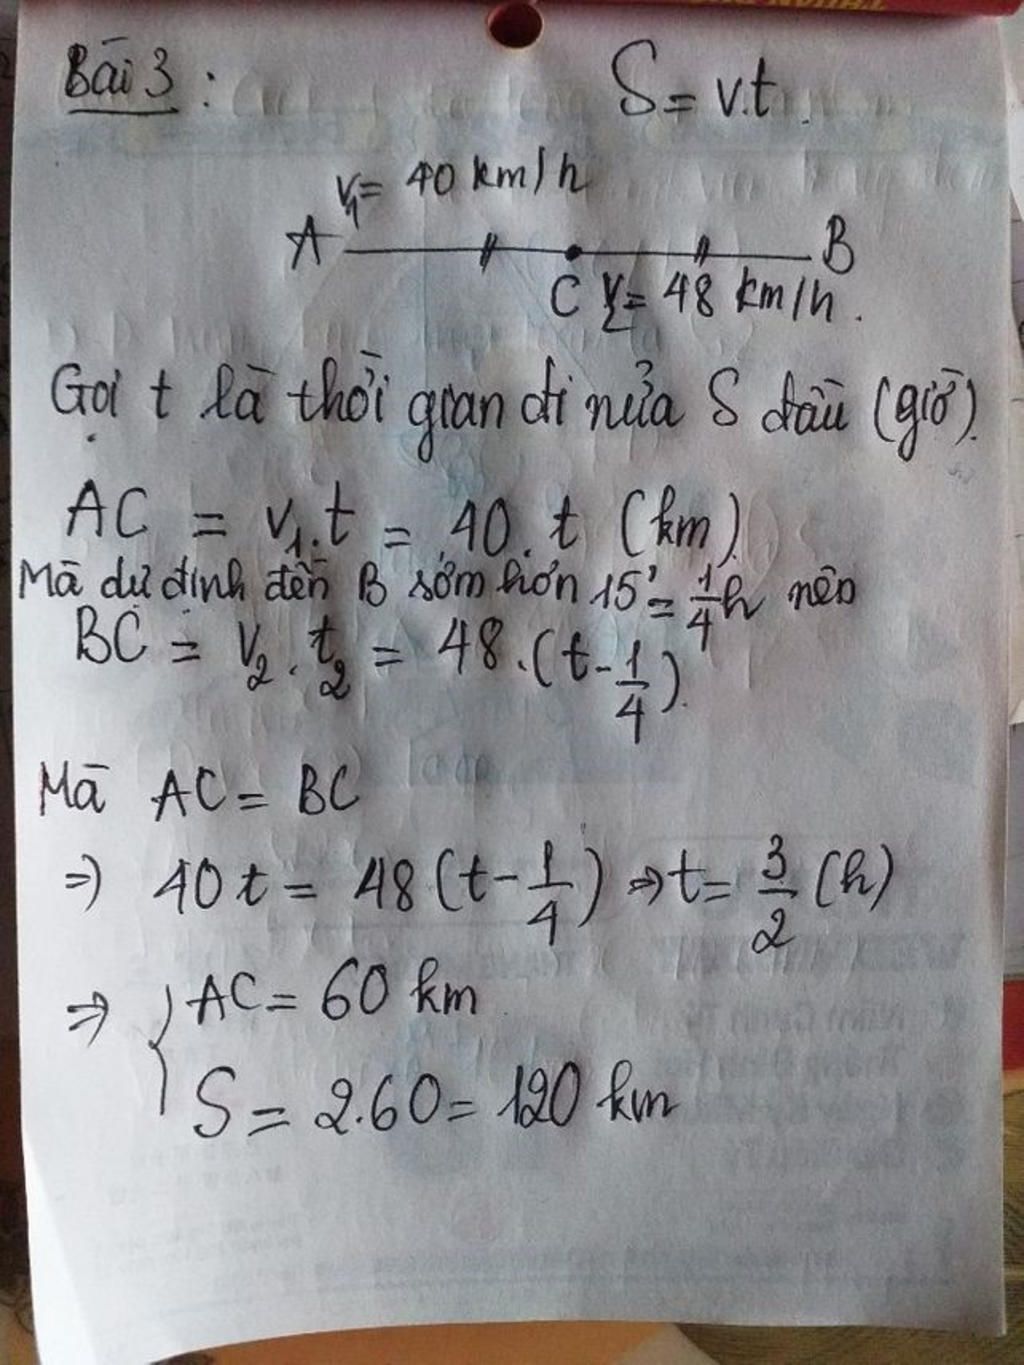 Bài 3 :
S = v.t.
v₁ = 40 km/h
A B
C v₂ = 48 km/h.
Gọi t là thời gian đi nửa S đầu (giờ).
AC = v₁.t = 40.t (km)
Mà dự định đến B sớm hơn 15' = 1/4 h nên
BC = v₂.t₂ = 48.(t - 1/4).
Mà AC = BC
⇒ 40t = 48(t - 1/4) ⇒ t = 3/2 (h)
⇒ { AC = 60 km
S = 2.60 = 120 km